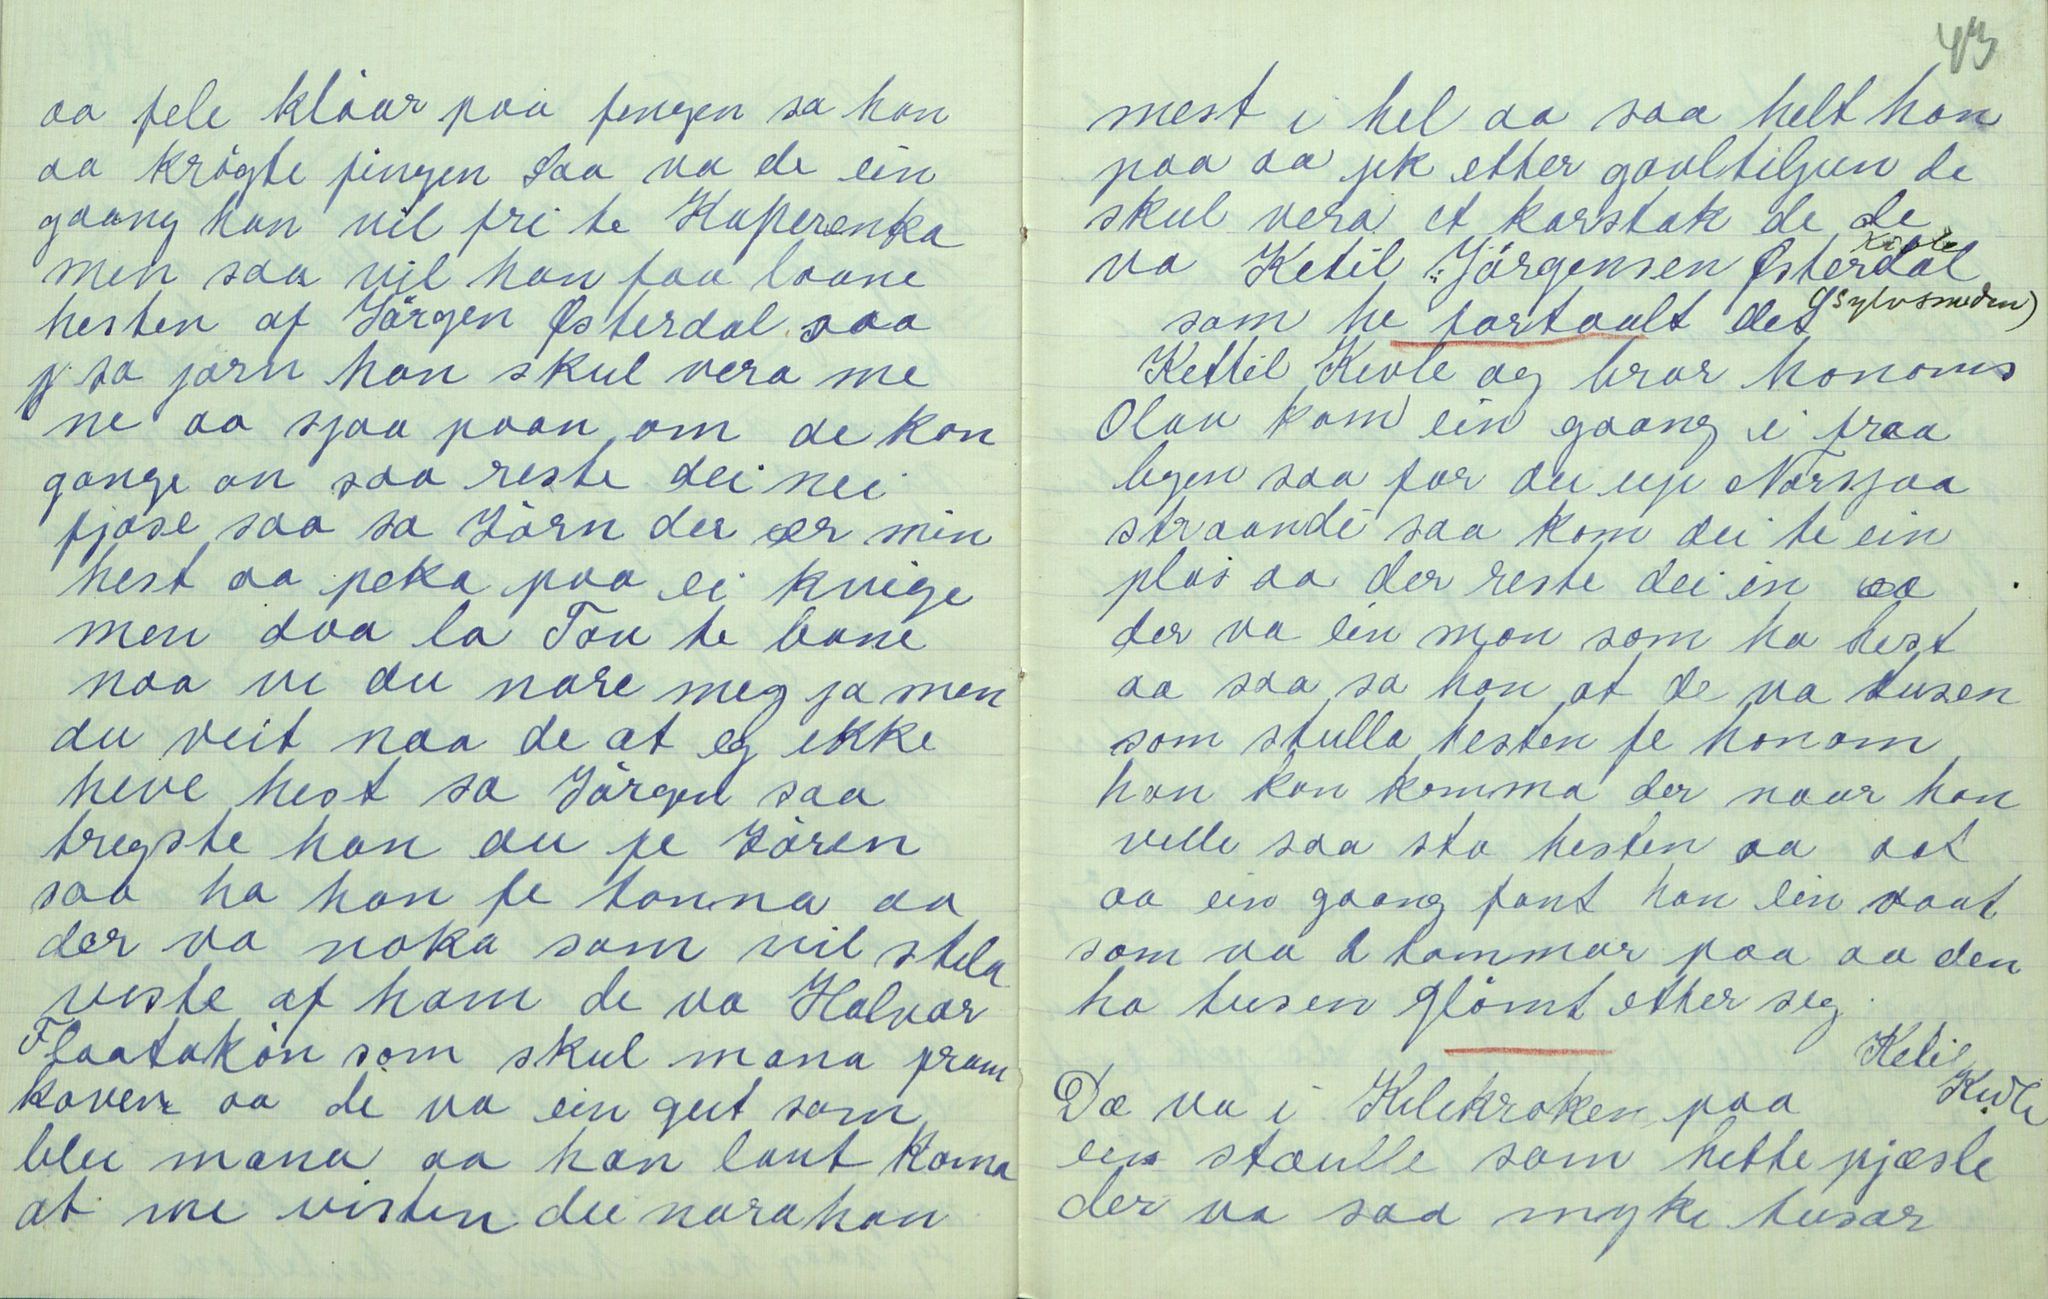 aa fele klåar paa fengen sa han
aa krögte fingen Saa va de ein
gaang han vil fri te Kaperenka
men saa vil han faa laane
hesten af Jörgen Østerdal saa
sa jorn han skul vera me
ne aa sjaa paan om de kan
gange an saa reste dei nei
fjose saa sa Jörn der er min
hest aa peka paa ei kvige
men daa la Tov te bane
naa vi du nare meg ja men
du veit naa de at eg ikke
heve hest sa Jörgen saa
tregste han du fe Jören
saa ha han fe tonna aa
der va noka som vil stela
veste af ham de va Halvar
Flaatakön som skul mana fram
kaven aa de va ein geit som
blei mana aa han laut koma
at me visten dei nara han
43
mest i hel aa saa helt han
paa aa jik etter gaaltiljun de
skul vera et karstak de de
va Ketil Jörgensen Østerdal
(sylvsmeden)
som he fortaalt det
Kettil Kivle og bror honoms
Olav kom ein gaang i fraa
byen saa for dei up Norsjaa
straandi saa kom dei te ein
plas aa der reste dei in aa
der va ein mon som ha hest
aa saa sa han at de va tusen
som stulla hesten fe honom
han kan komma der naar han
velle saa sto hesten aa aat
aa ein gaang fant han ein vaat
som va 2 tommar paa aa den
ha tusen glömt etter seg.
Ketil
Kivle
Dæ va i Kilekroken paa
ein stæulle som hette fjæsle
der va saa myke tusar